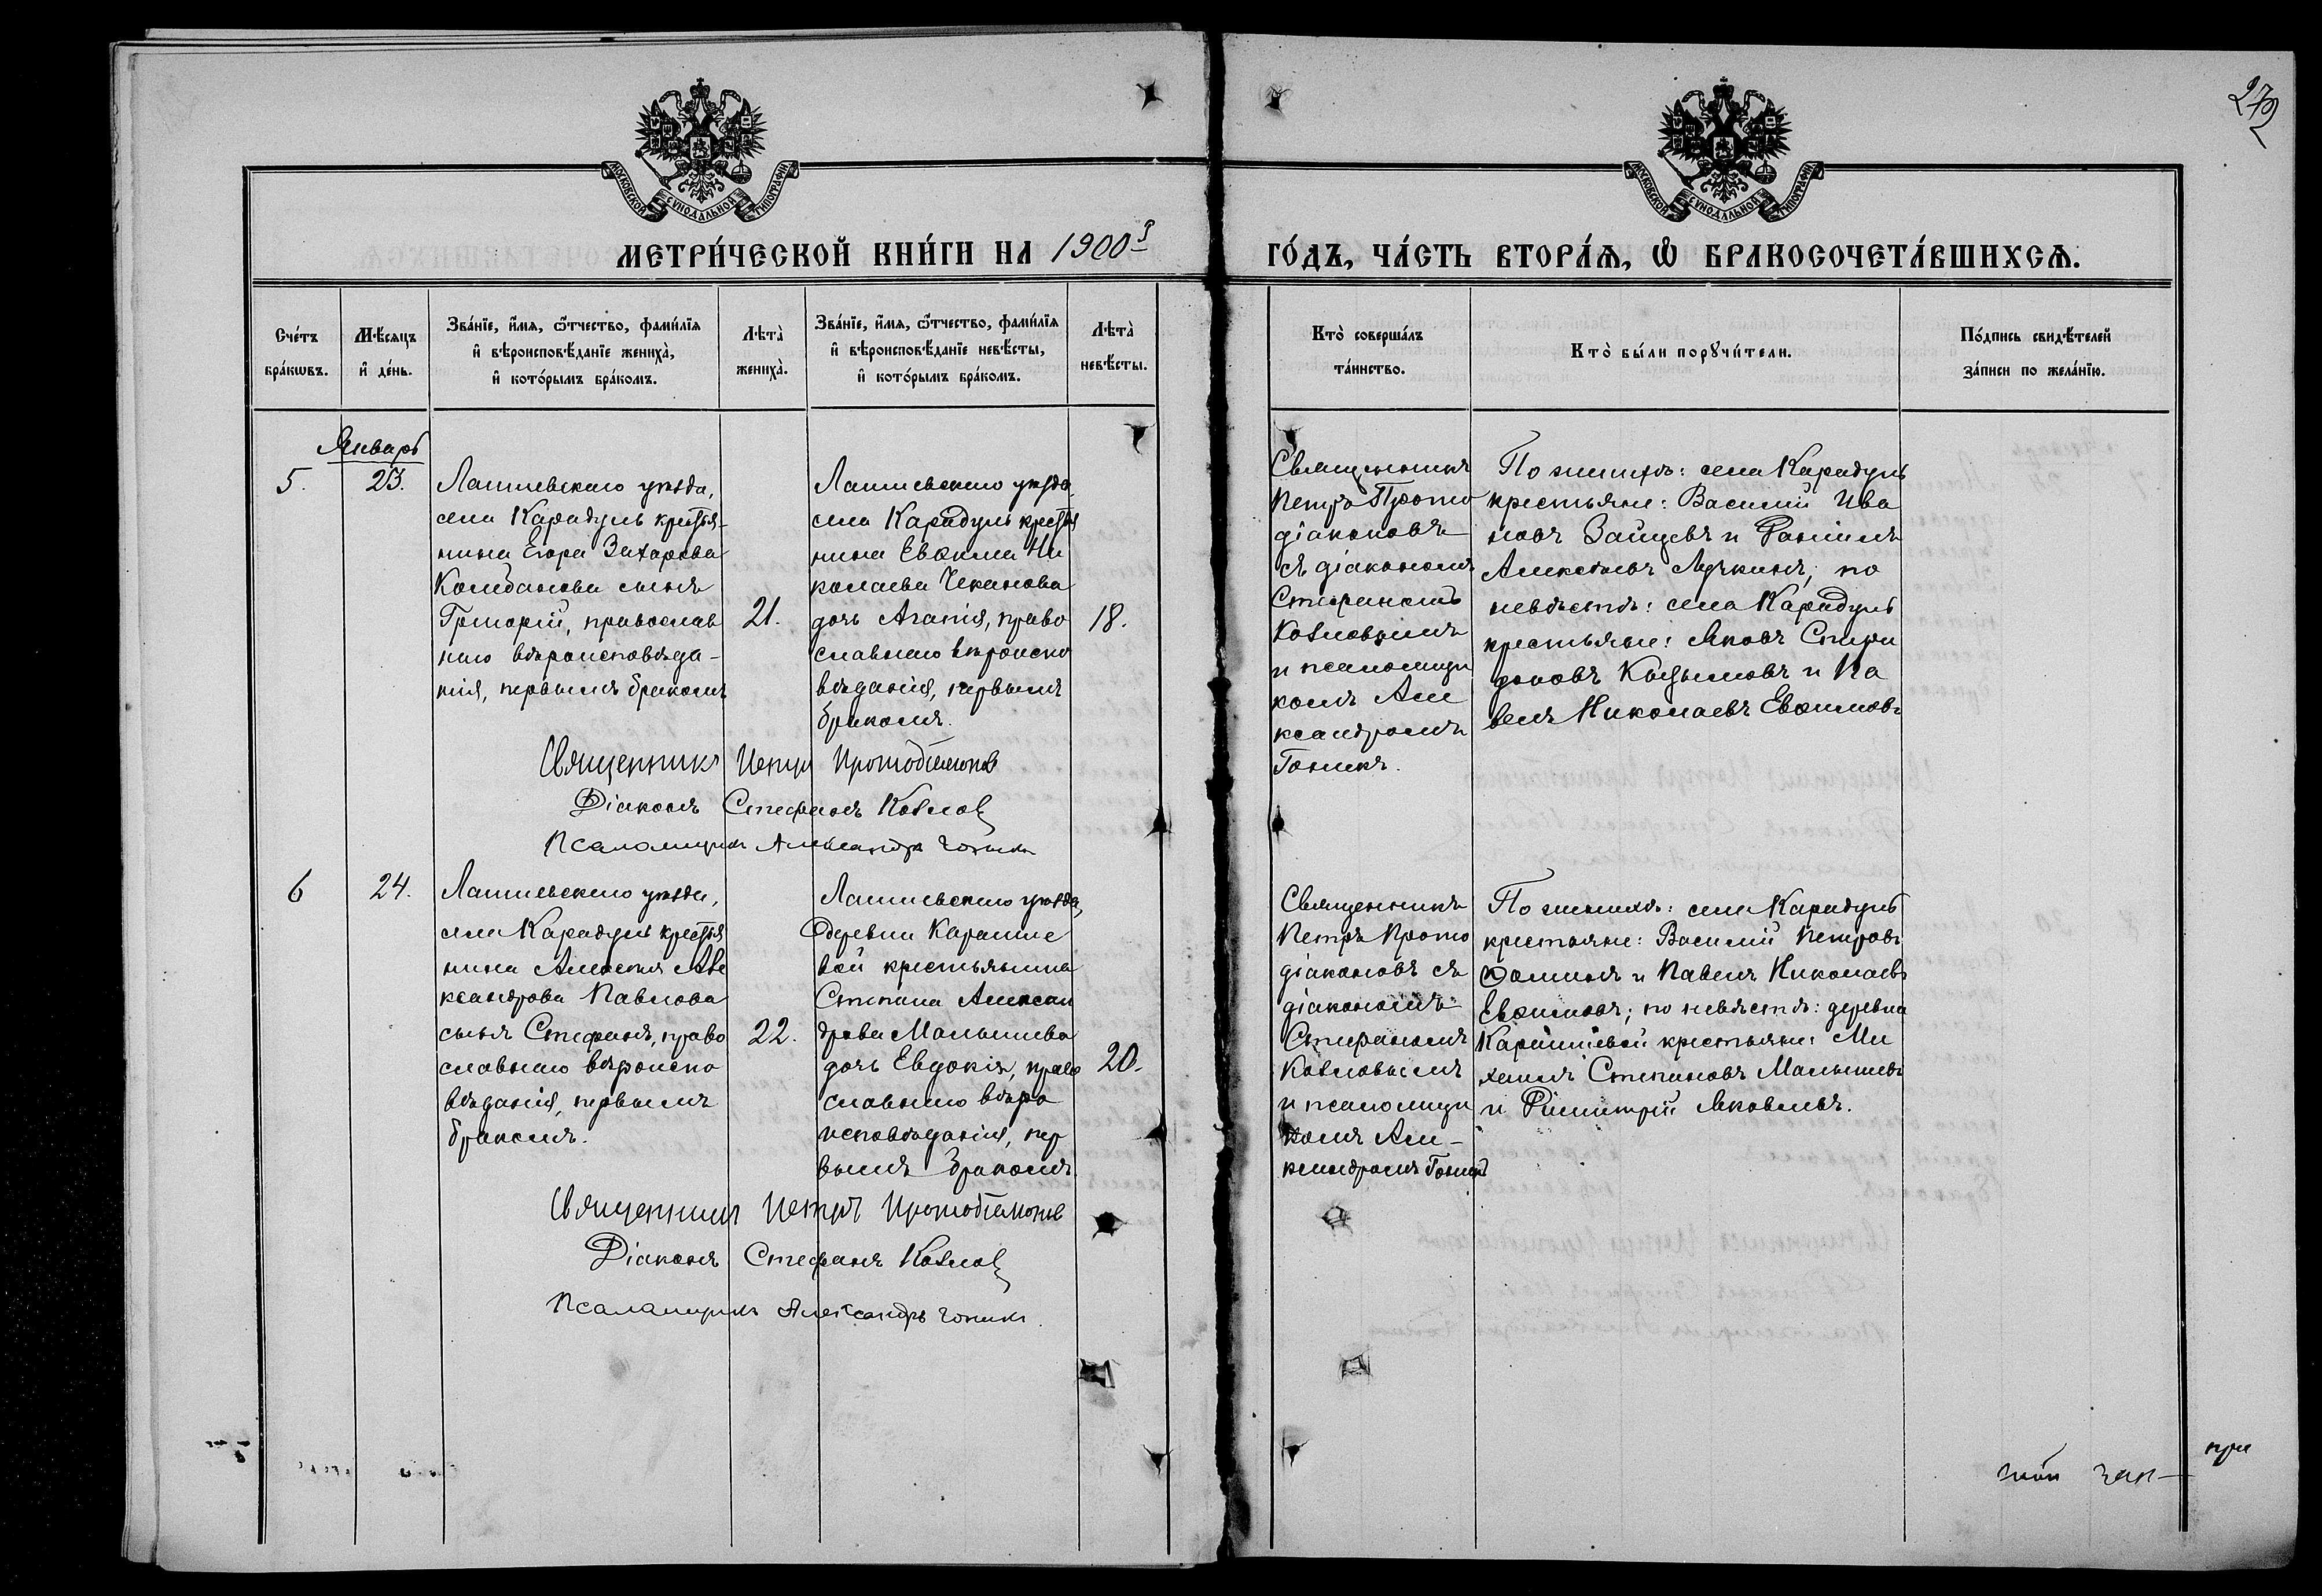 279
МОСКОВСКОЙ СѴНОДАЛЬНОЙ ТИПОГРАФІИ
МОСКОВСКОЙ СѴНОДАЛЬНОЙ ТИПОГРАФІИ
МЕТРИ́ЧЕСКОЙ КНИ́ГИ НА 1900й
ГО́ДЪ, ЧА́СТЬ ВТОРА́Ѧ, Ѡ БРАКОСОЧЕТА́ВШИХСѦ.
Сче́тъ
бра́кѡвъ.
Мѣ́сѧцъ
и҆ де́нь.
Зва́нїе, и҆́мѧ, ѻ҆́тчество, фами́лїѧ
и҆ вѣроисповѣ́данїе жениха̀,
и҆ кото́рымъ бра́комъ.
Лѣта̀
жениха̀.
Зва́нїе, и҆́мѧ, ѻ҆́тчество, фами́лїѧ
и҆ вѣроисповѣ́данїе невѣ́сты,
и҆ кото́рымъ бра́комъ.
Лѣта̀
невѣ́сты.
Кто̀ соверша́лъ
та́инство.
Кто̀ бы́ли порꙋчи́тели.
По́дпись свидѣ́телей
за́писи по жела́нїю.
Январь
5.
23.
Лаишевскаго уѣзда,
села Карадуль крестья-
нина Егора Захарова
Колбанова сынъ
Григорій, православ
наго вѣроисповѣда-
нія, первымъ бракомъ
21.
Лаишевскаго уѣзда,
села Карадуль крестья
нина Евѳима Ни
колаева Чеканова
дочь Агапія, право
славнаго вѣроиспо
вѣданія, первымъ
бракомъ.
18.
Священникъ
Петръ Прото
діаконовъ
съ діакономъ
Стефаномъ
Козловымъ
и псаломщи
комъ Але
ксандромъ
Гоникъ.
По женихѣ: села Карадуль
крестьяне: Василій Ива
новъ Зайцевъ и Даніилъ
Алексѣевъ Лучкинъ; по
невѣстѣ: села Карадуль
крестьяне: Яковъ Спири
доновъ Кадымовъ и Па
велъ Николаевъ Евѳимовъ
Священникъ Петръ Протодіаконовъ
Діаконъ Стефанъ Козловъ
Псаломщикъ Александръ Гоникъ
6
24.
Лаишевскаго уѣзда,
села Карадуль крестья
нина Алексѣя Але
ксандрова Павлова
сынъ Стефанъ, право
славнаго вѣроиспо
вѣданія, первымъ
бракомъ.
22.
Лаишевскаго уѣзда,
деревни Караише
вой крестьянина
Степана Алексан
дрова Малышева
дочь Евдокія, право
славнаго вѣро
исповѣданія, пер
вымъ бракомъ.
20.
Священникъ
Петръ Прото
діаконовъ съ
діакономъ
Стефаномъ
Козловымъ
и псаломщи
комъ Але-
ксандромъ Гоникъ
По женихѣ: села Карадуль
крестьяне: Василій Петровъ
Ѳоминъ и Павелъ Николаевъ
Евѳимовъ; по невѣстѣ: деревни
Караишевой крестьяне: Ми
хаилъ Степановъ Малышевъ
и Димитрій Яковлевъ.
Священникъ Петръ Протодіаконовъ
Діаконъ Стефанъ Козловъ
Псаломщикъ Александръ Гоникъ.
при